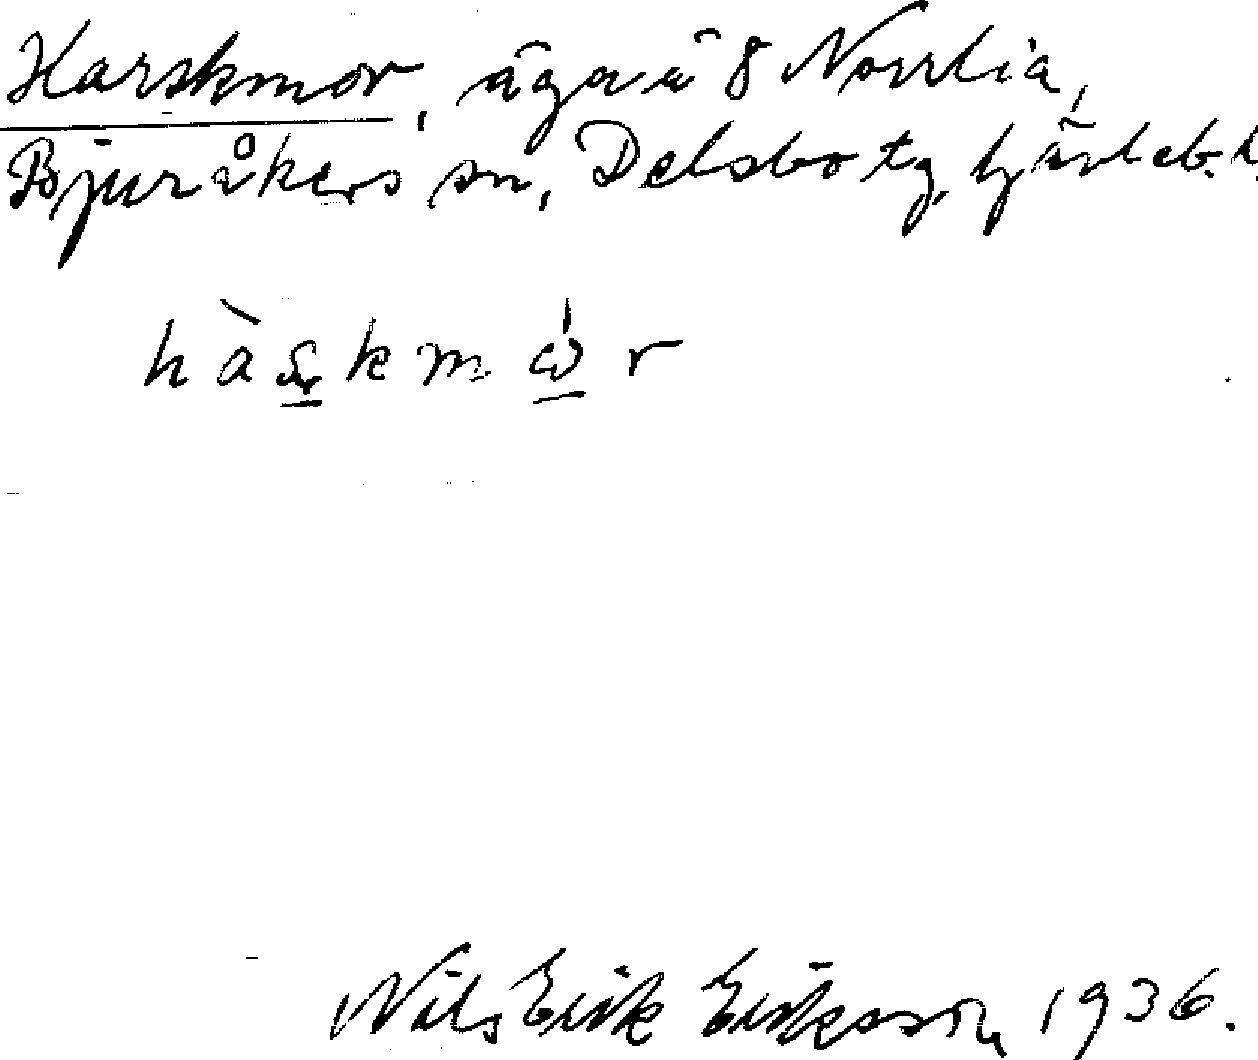 Harskmor, äga å 8 Norrlia,
Bjuråkers sn, Delsbo tg, Gävleb. l.
hàskmωr
Nils Erik Eriksson 1936.